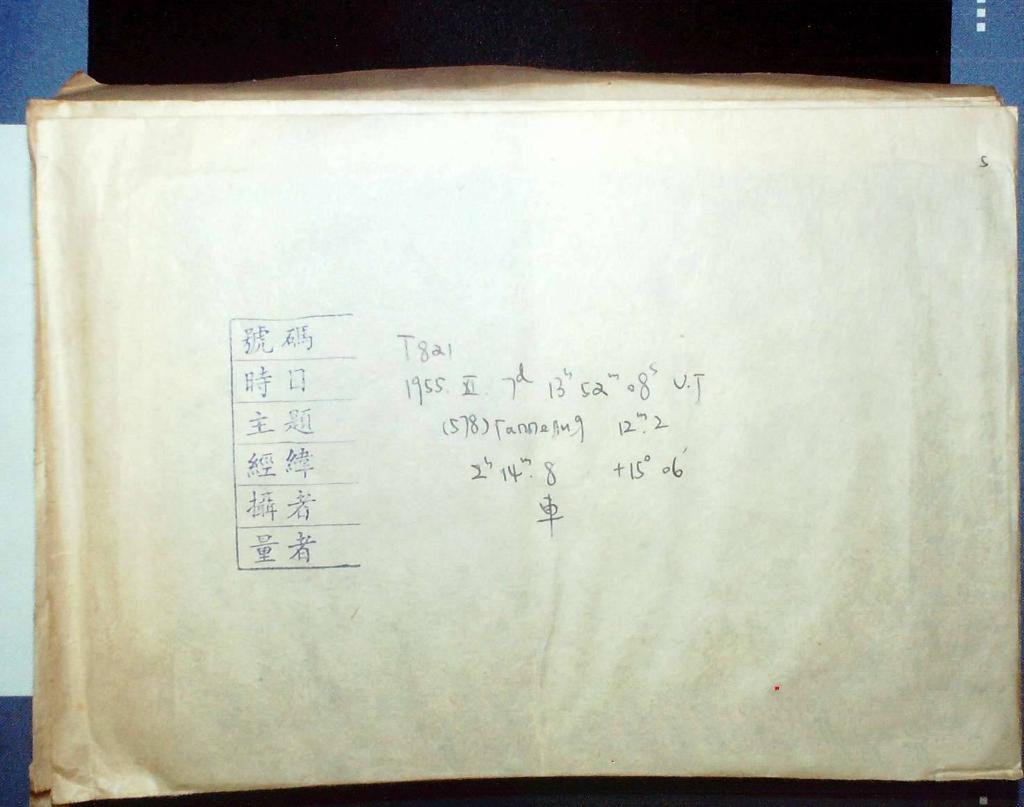 5
號碼 T821
時日 1955. XI. 7d 13h 52m 08s U.T
主題 (578) 12m.2
經緯 2h 14m.8 +15° 06'
攝者 車
量者